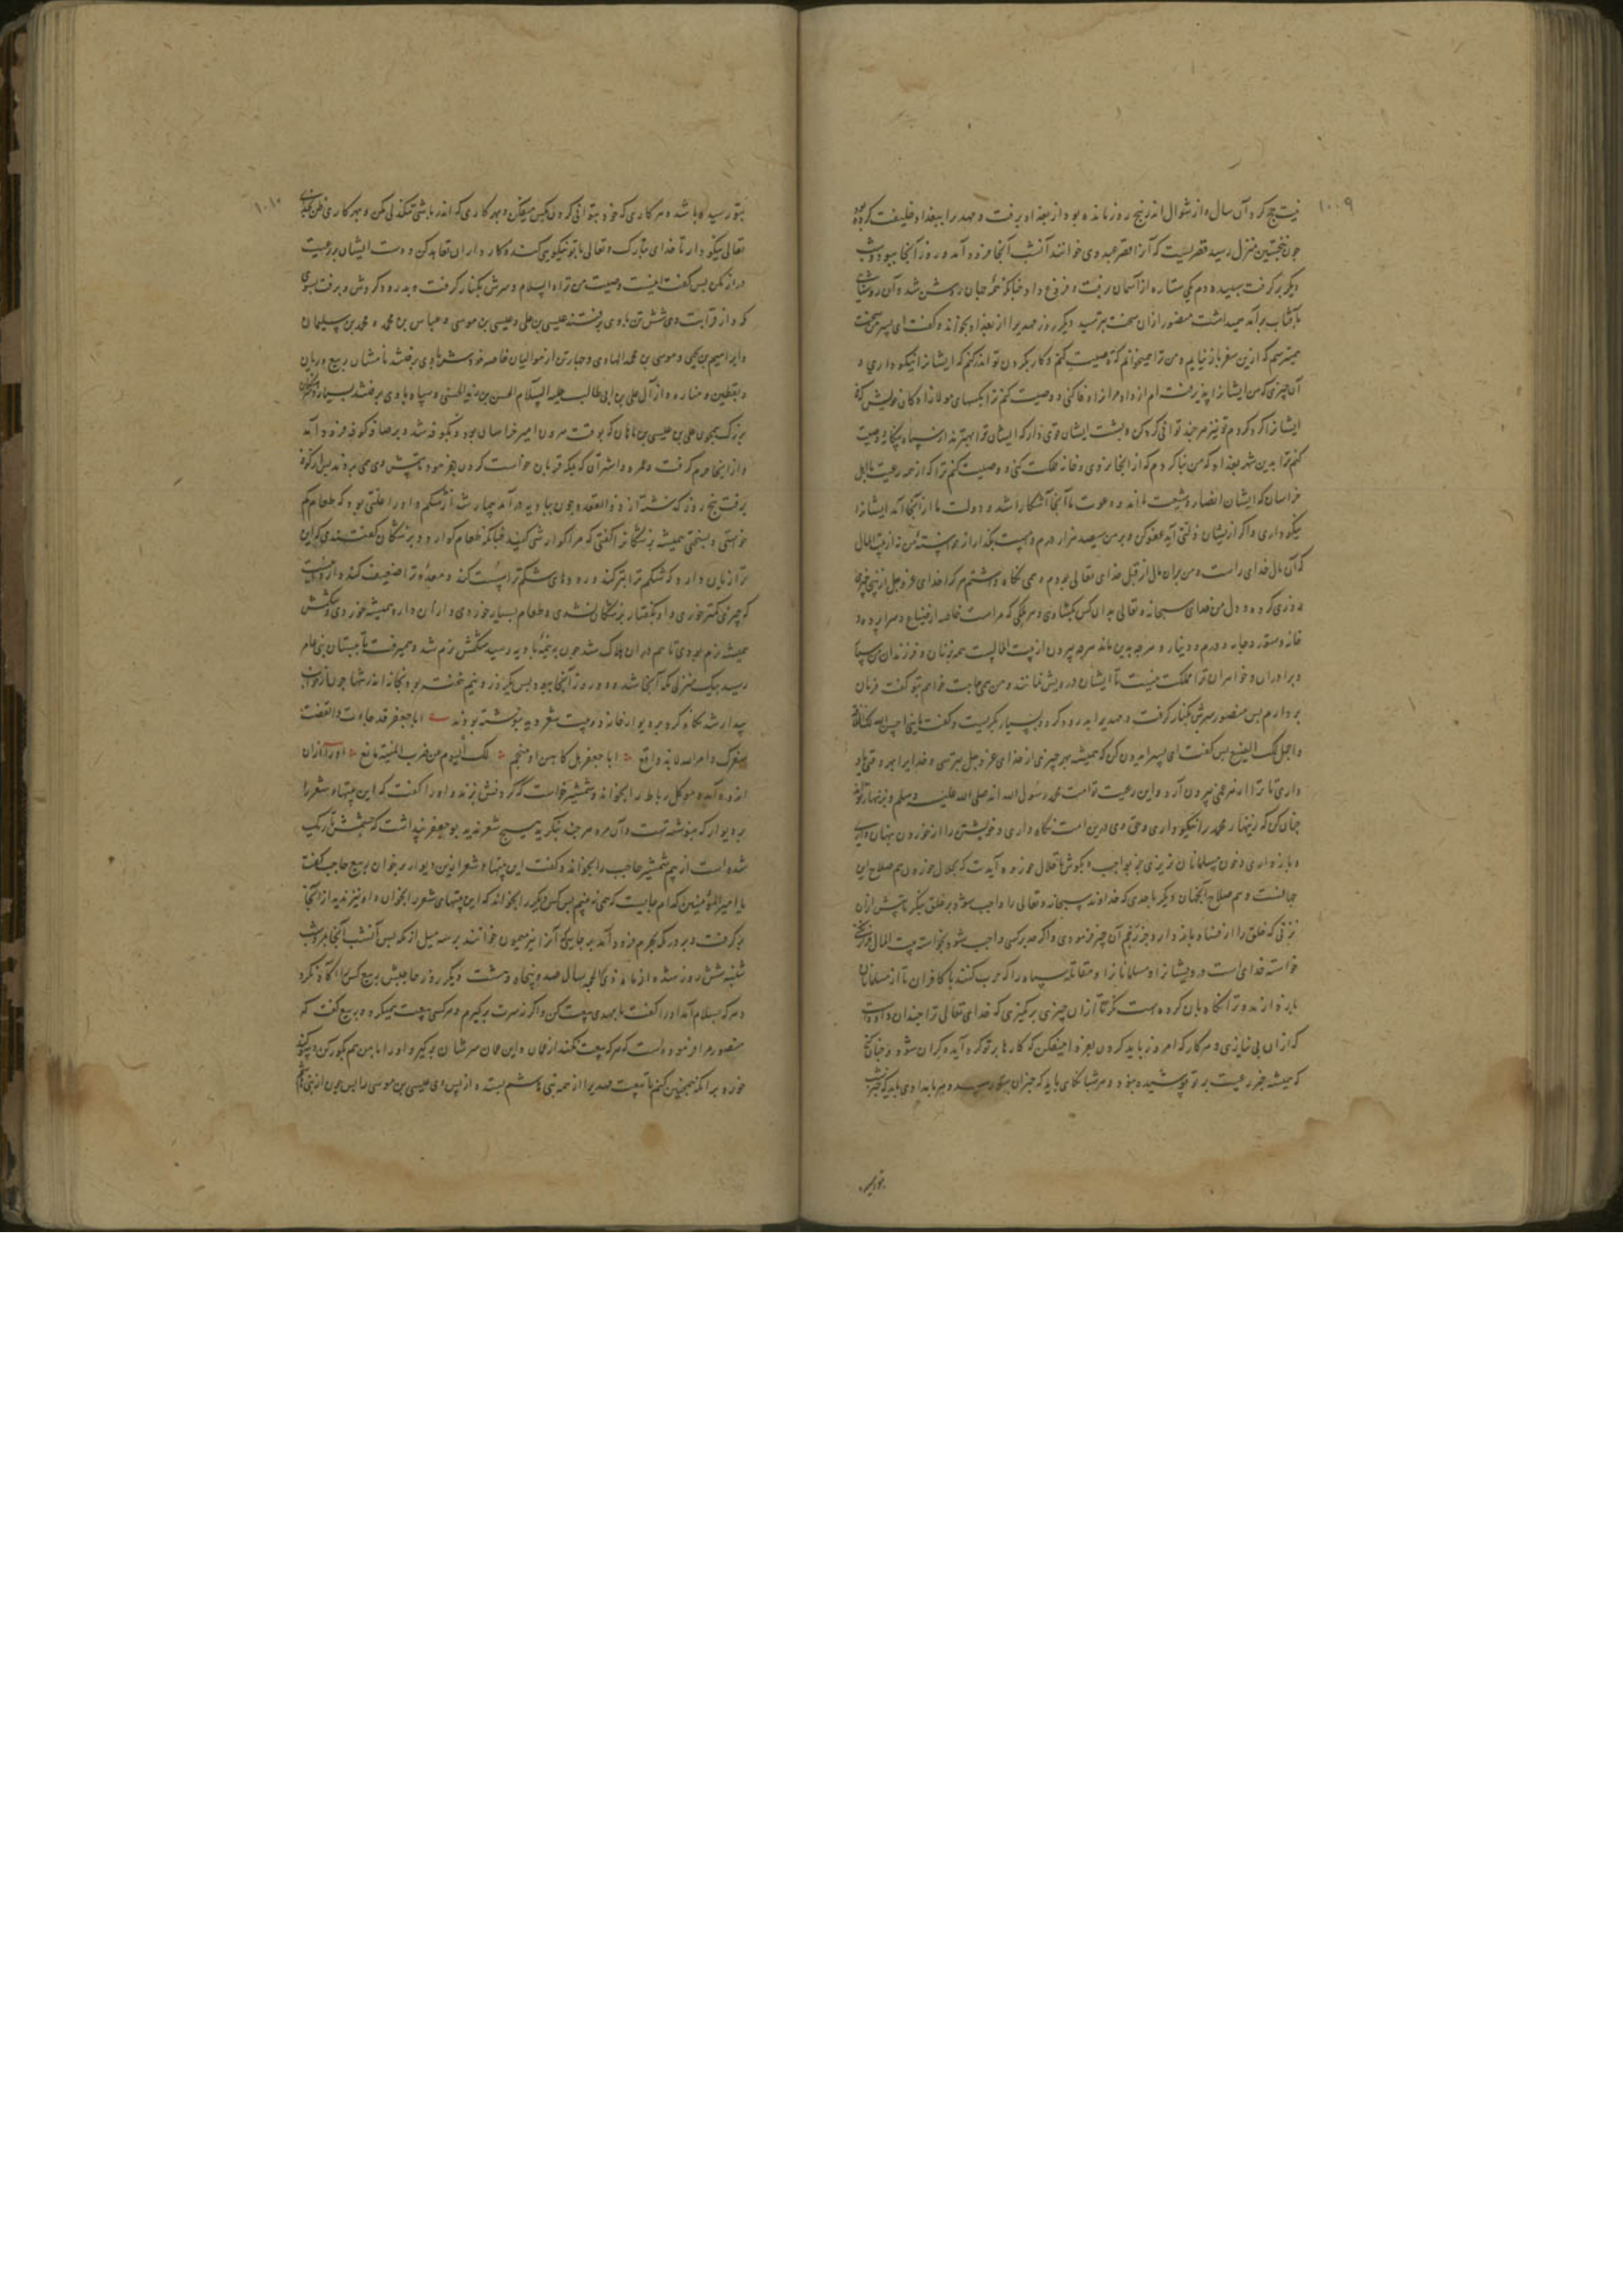 ۱۰۰۹
نیت حج کرد آن سال و از شوال اندر پنج روز مانده بود از بغداد برفت و مهد را ببغداد خلیفت کرد
چون نخستین منزل رسید قصریست که آنرا قصر عبدوی خوانند آنشب آنجا فرود آمد و روز آنجا ببود و شب
دیگر برگرفت سپیده دم یکی ستاره از آسمان برفت و فروغ داد چنانکه همه جهان روشن شد و آن روشنایی
تا آفتاب برآمد همیداشت منصور ازان سخت بترسید دیگر روز مهدیرا از بغداد بخواند و گفت ای پسر من سخت
همیترسم که ازین سفر باز نیایم و من ترا همیخوانم که وصیت کنم و کار بکردن تو اندر کنم که ایشانرا نیکو داری و
آن چیزی که من ایشانرا پذیرفته ام از داد مرا زاد وفا کنی و وصیت کنم ترا بکسهای مولازادگان خویش که
ایشانرا گرد کردم تو نیز هر چند توانی گرد کن و پشت ایشان قوی دار که ایشان ترا بهترند از سپاه بیگانه و وصیت
کنم ترا بدین شهر بغداد که من بنا کردم که از اینجا نروی و خانه مملکت کنی و وصیت کنم ترا که از همه رعیت باهل
خراسان که ایشان انصار و شیعت مااند و دعوت ما آنجا آشکارا شد و دولت ما از آنجا آمد ایشانرا
نیکو داری و اگر از یشان زلتی آید عفو کن و بر من سیصد هزار درم و بیست بگذار از خواسته من نه از بیت المال
که آن مال خدای راست و من بران مال از قبل خدای تعالی بودم و همی نگاه داشتم هر که را خدای عزوجل از بنی چیزی
روزی کرده بود دل من خدای سبحانه و تعالی بدان کس بگشادی و هر ملکی که مراست خاصه از ضیاع و سرا پرده و
خانه و ستور و جامه و درم و دینار و هر چه بدین ماند هر چه بیرون از بیت المالست همه بزنان و فرزندان من سپار
و برادران و خواهران ترا مملکت نیست تا ایشان درویش نمانند و من همی حاجت خواهم بتو گفت فرمان
بردارم پس منصور سرش بکنار گرفت و مهدیرا بدرود کرد و بسیار بگریست و گفت یا بنی احسن الله
و اجمل لک الصنع پس گفت ای پسر ایدون کن که همیشه بهر چیزی از خدای عزوجل بترسی و خدایرا بهر وقتی یاد
داری تا ترا از هر غمی بیرون آرد و این رعیت تو امت محمد رسول الله اند صلی الله علیه وسلم
چنان کن که زینهار محمد را نیکو داری و حق وی درین امت نگاه داری و خویشتن را از خوردن پنهان
و باز داری و خون مسلمانان نریزی جز بواجب و بکوش تا حلال خورده آیدت که بحلال خوردن هم صلاح این
جهانست و هم صلاح آنجهان و دیگر تا حدی که خداوند سبحانه و تعالی را واجب شود بر خلق بیکر تا بیش ازان
نزنی که خلق را از فساد باز دارد جز زخم آن چیز فرمودی و اگر حد بر کسی واجب شود بخواسته بیت المال
خواسته خدای است درویشانرا و مسلمانانرا و مقاتله سپاه را که حرب کنند با کافران تا از مسلمانان
باز دارند و ترا نگاه بان کرده است نگر تا ازان چیزی برنگیری که خدای تعالی ترا چندان داده است
که ازان بی نیازی و هر کار که امروز باید کردن بفردا میفکن که کارها بر تو گرد آید و گران شود و چنان کن
که همیشه خبر رعیت بر تو پوشیده نبود و هر شبانگاهی باید که خبران بتو رسد و هر بامدادی باید که خبر شب
بتو رسید
۱۰۱۰
بتو رسیده باشد و هر کاری که خود بتوانی کردن بکس میفکن و بهر کاری که اندر باشی تنگدلی مکن و بهر کاری ظن
تعالی نیکو دار تا خدای تبارک و تعالی با تو نیکویی کند و کارداران تعاهد کن و دست ایشان بر رعیت
دراز مکن پس گفت اینست وصیت من ترا والسلام و سرش بکنار گرفت و بدرود کردش و برفت بسوی
که و از قرابت وی شش تن با وی برفتند عیسی بن علی و عیسی بن موسی و عباس بن محمد و محمد بن سلیمان
و ابراهیم بن یحیی و موسی بن محمد الهادی و چهار تن از موالیان خاصه خود با وی برفتند نامشان ربیع و ریان
و یقطین و مناره و از آل علی بن ابی طالب علیه السلام الحسن بن زید الحسنی و سپاه با وی برفتند بسیار
بزرگ همچون علی بن عیسی بن ماهان که بوقت هرون امیر خراسان بود و بکوفه شد و برصافه کوفه فرود آمد
و از اینجا حرم گرفت و عمره و اشتران که بمکه قربان خواست کردن بفرمود تا پیش وی همی بردند پس از کوفه
برفت پنج روز گذشته از ذوالقعده و چون ببادیه درآمد بیمار شد از شکم و او را علتی بود که طعام کم
خواستی و همیشه پزشکانرا گفتی که مرا گوارشی کنید چنانکه طعام گوارد و پزشکان گفتندی که این
ترا زیان دارد که شکم ترا بتر کند و رودهای شکم ترا سست کند و معده ترا ضعیف کند
که چیزی کمتر خوری و او بگفتار پزشکان نشدی و طعام بسیار خوردی و داروان همیشه خوردی و شکمش
همیشه نرم بودی تا هم دران هلاک شد چون به نیمه بادیه رسید شکمش نرم شد و همیرفت تا ببستان بنی عامر
رسید بیک منزلی مکه آنجا شد و دو روز آنجا ببود و پس یک روز نیم خفته بود بخانه اندر تنها چون از خواب
بیدار شد نگاه کرد بر دیوار خانه دو بیت شعر دید نوشته بودند ابا جعفر قد حانت وانقضت
سنوک و امر الله لابد واقع ابا جعفر هل کاهن او منجم لک الیوم من ضرب المنیة مانع
اندوه آمد و موکل رباط را بخواند و شمشیر خواست که گردنش بزند و او را گفت که این بیتها و شعر را
بر دیوار که نوشته است و آن مرد هر چند بنگرید هیچ شعر ندید بوجعفر پنداشت که چشمش تاریک
شده است از بیم شمشیر حاجب را بخواند و گفت این بیتها و شعر ازین دیوار برخوان ربیع حاجب گفت
یا امیرالمؤمنین کدام جایست که همی نبینم پس کس دیگر را بخواند که این بیتهای شعر را بخوان و او نیز ندید از آنجا
برگرفت و بدر مکه بحرم فرود آمد بجایی که آنرا بئر میمون خوانند بر سه میل از مکه پس آنشب آنجا بمرد شب
شنبه شش روز شده از ماه ذی الحجه سال صد و پنجاه و هشت دیگر روز حاجبش ربیع کس را آگاه نکرد
و هر که بسلام آمد او را گفت با مهدی بیعت کن و اگر نه سرت برگیرم و هر کسی بیعت همیکرد و ربیع گفت که
منصور مرا فرموده است که هر که بیعت نکند ازمان و این مان سرشان برگیر و او را با من هم بگور کن
خورد بر آنکه همچنین کنم تا بیعت مهدیرا از همه بنی هاشم بستد و از پس وی عیسی بن موسی را پس چون از بنی هاشم